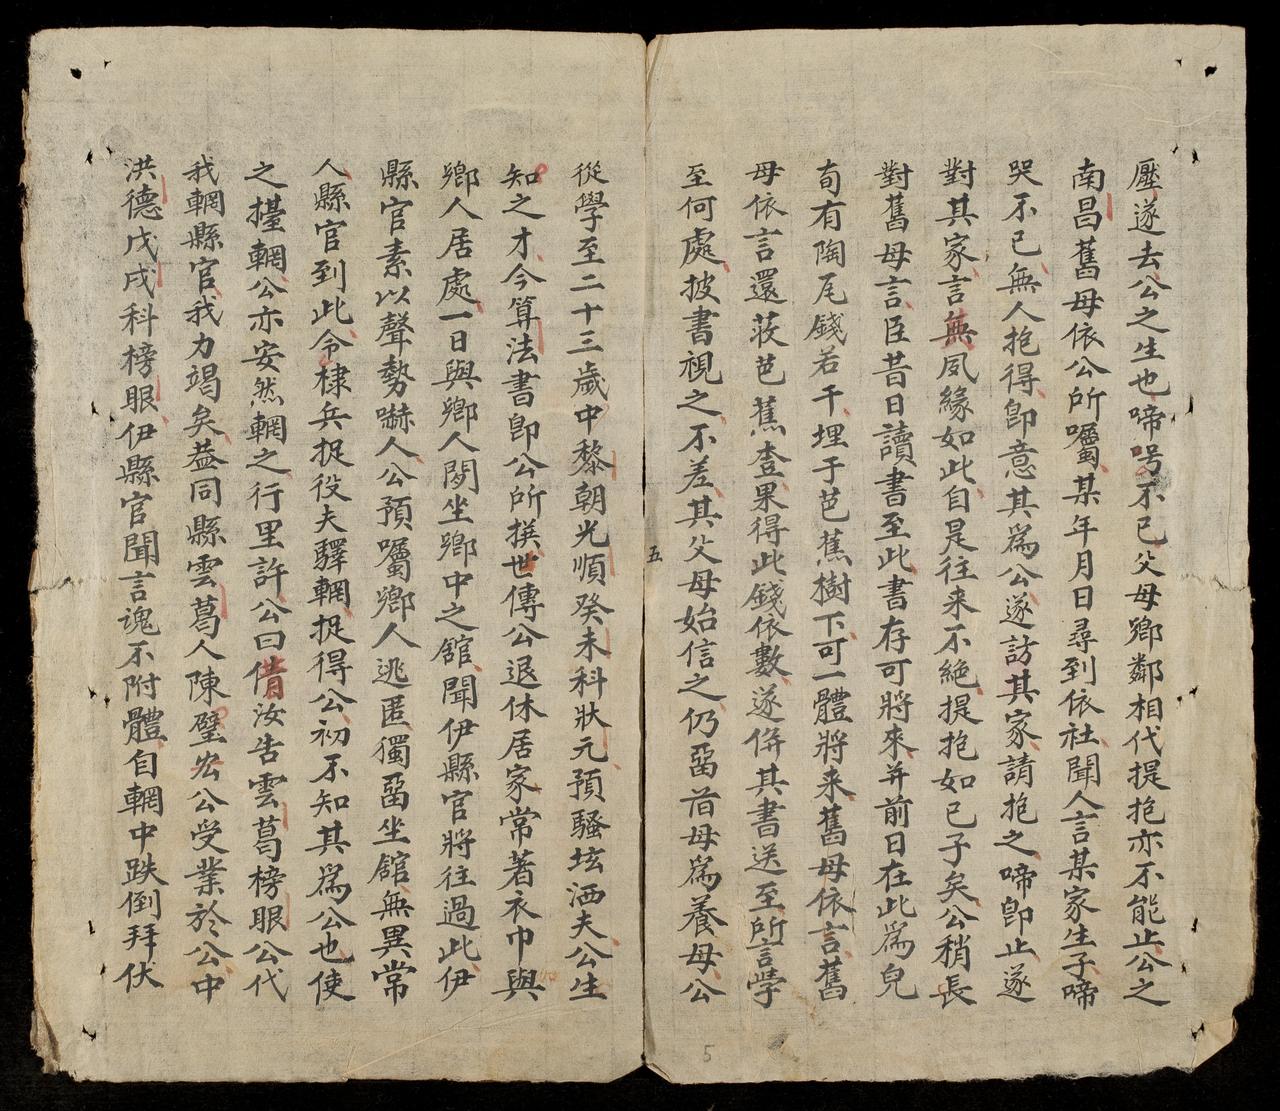 壓遂去公之生也啼呺不已父母鄉鄰相代提抱亦不能止公之
南昌舊母依公所囑某年月日尋到依社聞人言某家生子啼
哭不已無人抱得即意其爲公遂訪其家請抱之啼即止遂
對其家言無夙緣如此自是往来不絶提抱如已子矣公稍長
對舊母言臣昔日讀書至此書存可將來并前日在此爲兒
旬有陶尾錢若干埋于芭蕉樹下可一體將来舊母依言舊
母依言還荍芭蕉查果得此錢依數遂併其書送至所言斈
至何處披書視之不差其父母始信之仍畱首母爲養母公
五
從學至二十三歲中黎朝光順癸未科狀元預騷坛洒夫公生
知之才今算法書即公所撰世傳公退休居家常著衣巾與
鄉人居處一日與鄉人閒坐鄉中之舘聞伊縣官將往過此伊
縣官素以聲勢嚇人公預囑鄉人逃匿獨畱坐舘無異常
人縣官到此令棣兵捉役夫驛輞捉得公初不知其爲公也使
之擡輞公亦安然輞之行里許公曰借汝告雲葛榜眼公代
我輞縣官我力竭矣葢同縣雲葛人陳璧宏公受業於公中
洪德戊戌科榜眼伊縣官聞言魂不附體自輞中跌倒拜伏
5